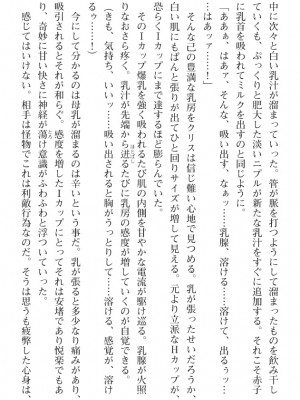 中に次々と白い乳汁が溜まっていった。管が脈を打つようにして溜まったものを飲み干し
ていくも、ぷっくりと肥大した淡いニプルが新たな乳汁をすぐに追加する。それこそ赤子
に乳首を吸われてミルクを出すのと同じように。
「ああぁ、はぁァ。そんな、吸い出す、なぁッ……乳腺、溶ける……溶けて、出るぅッ…
…はあぁッァ……!」
そんな己の豊満な乳房をクリスは信じ難い心地で見つめる。乳が張ったせいだろうか、
白い肌にもぱんと張りが出てひと回りサイズが増して見える。元より立派なHカップが、
恐らくIカップにまで達するほど膨らんでいた。
そのIカップ爆乳を強く吸われるたび肌の内側を甘やかな電流が駆け巡る。乳腺が火照
りなおさら疼く。乳汁が先端から迸るたびに乳房の感度が増していくのが自覚できる。
(き、気持ち、いいッ……吸い出されると胸がうっとりして……溶ける、感覚が、溶け
るッ……!)
今にして分かるのは母乳が溜まるのは辛いという事だ。乳が張ると多少なり痛みがあり
吸引されるとそれが和らぐ。感度を増したIカップにとってそれは安堵であり悦楽でもあ
り、奇妙に甘い快さに神経が蕩け意識がふわふわと浮ついていった。
感じてはいけない。相手は怪物でこれは利敵行為なのだ。そうは思うも疲弊した心身は、